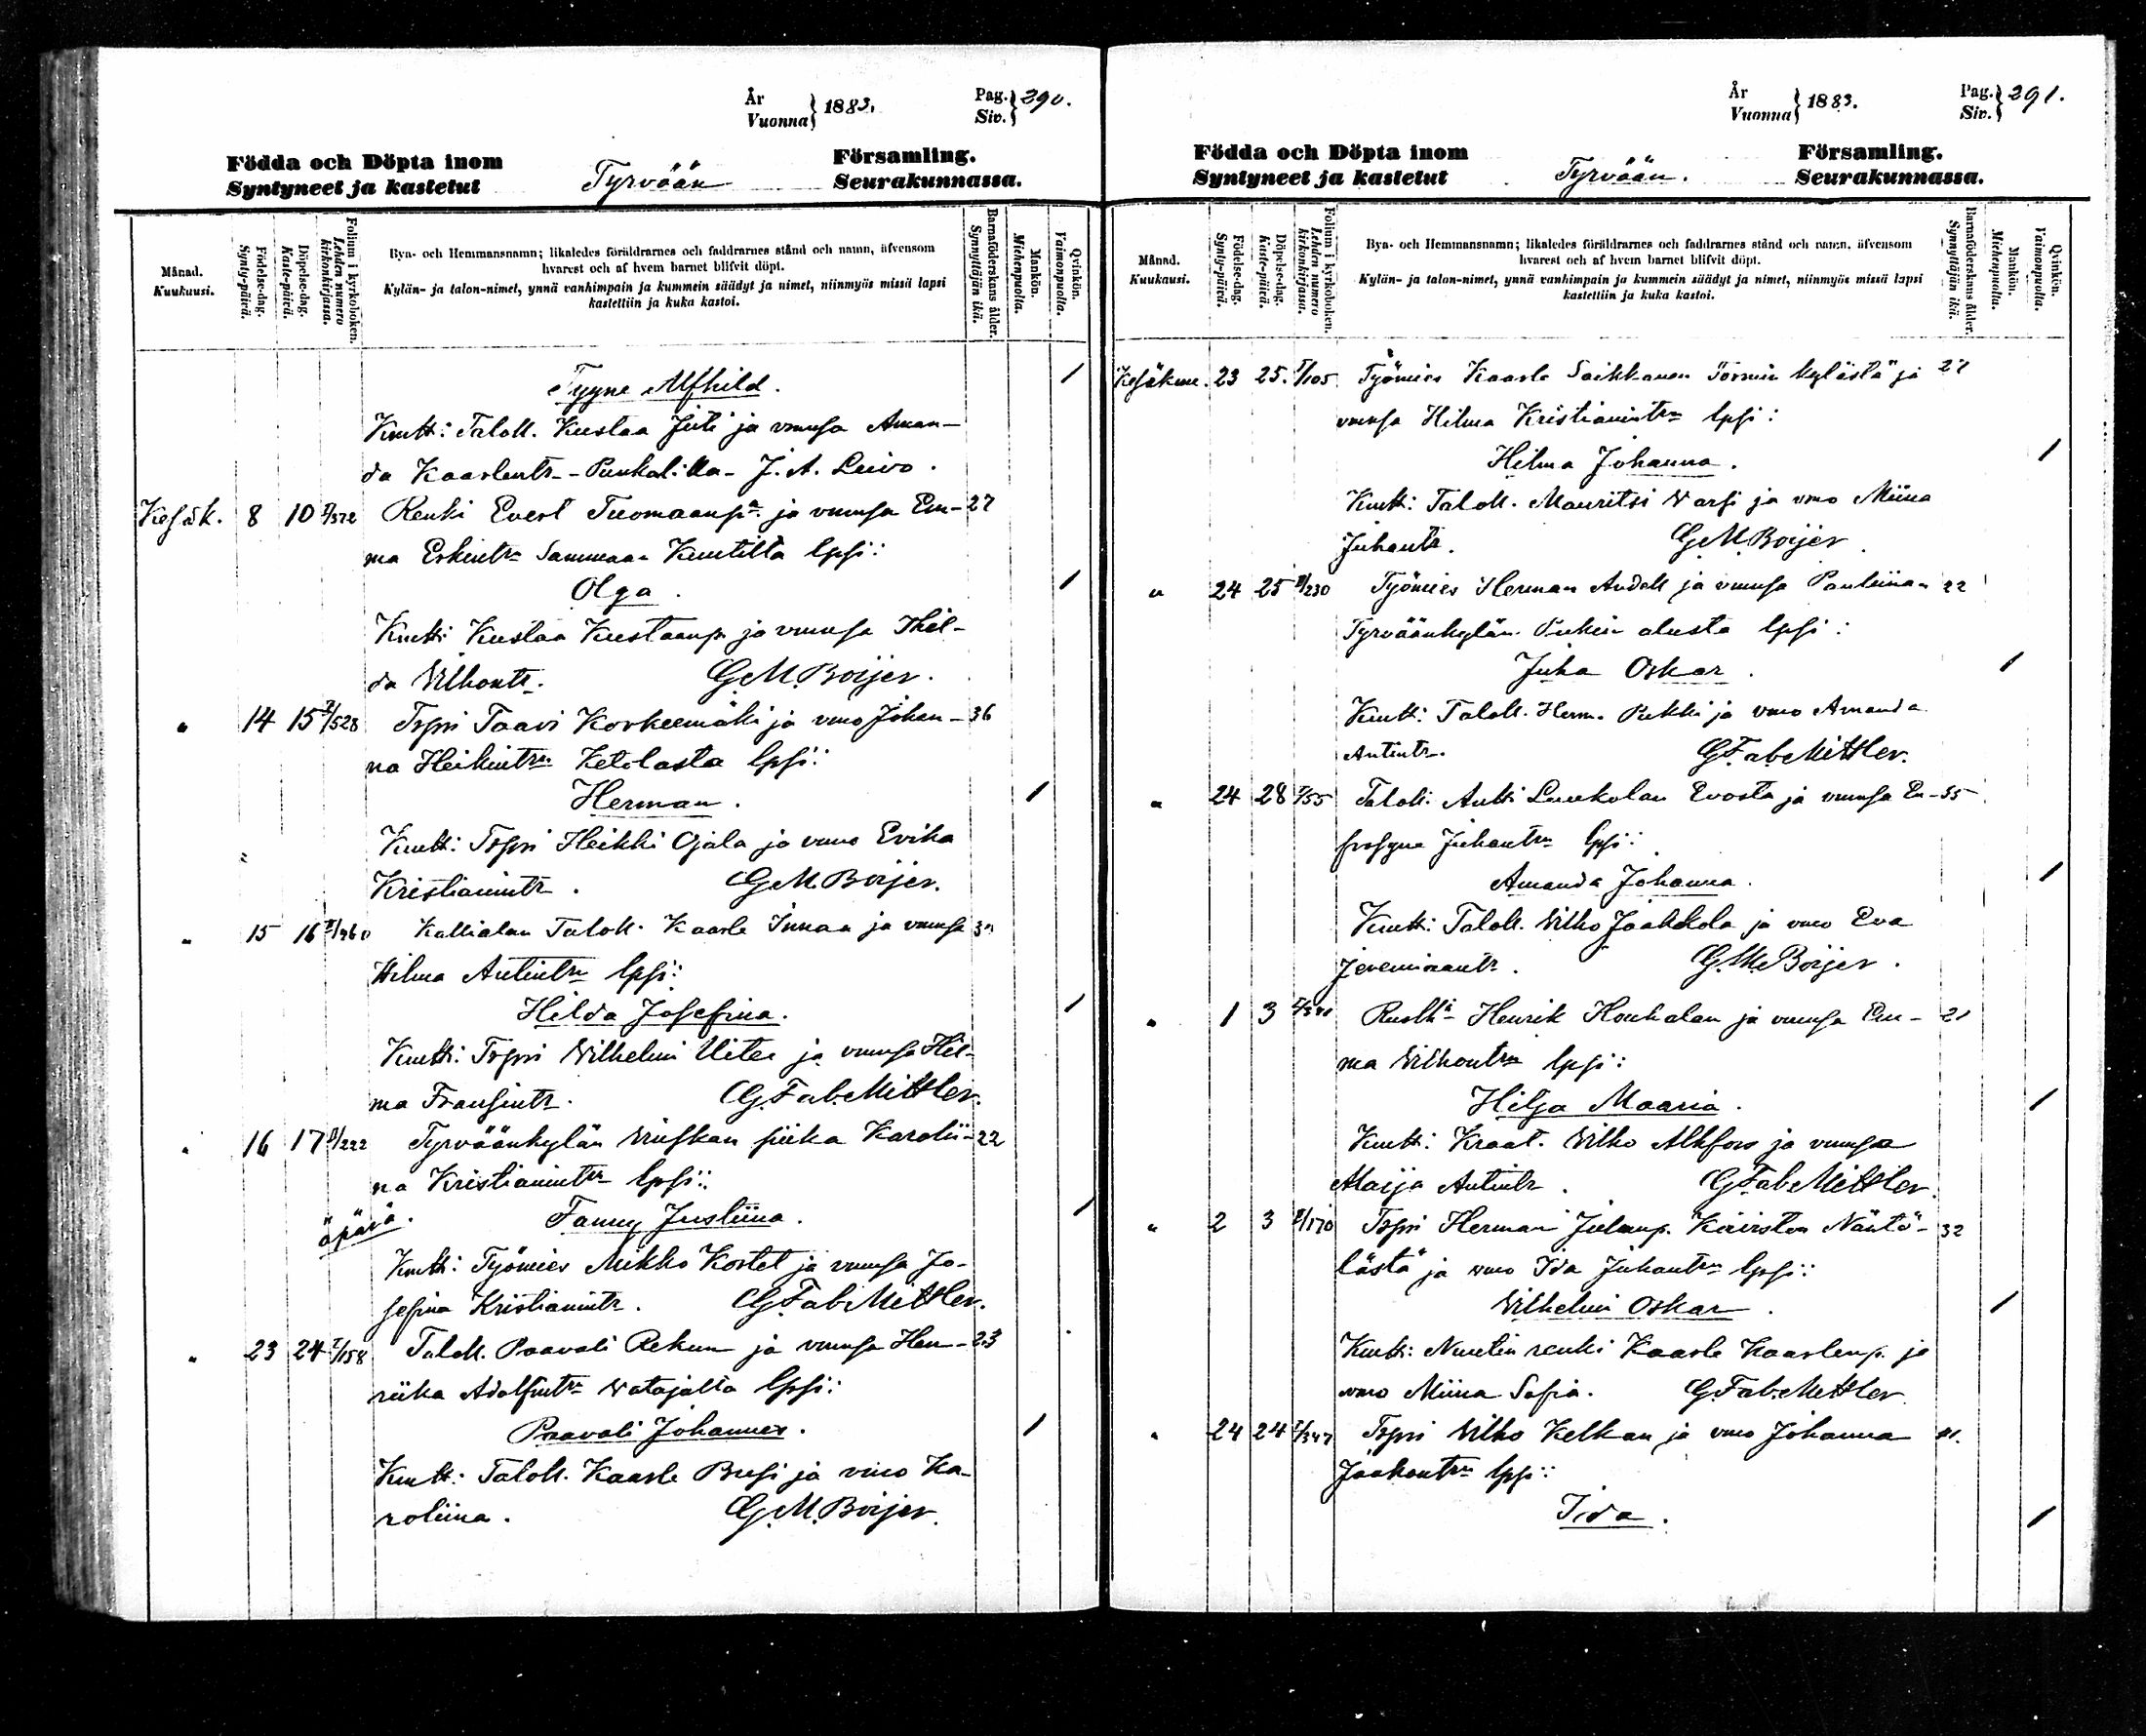 År
Vuonna } 1883.
Pag.
Siv. } 290.
Födda och Döpta inom
Syntyneet ja kastetut
Tyrvään
Församling.
Seurakunnassa.
Månad.
Kuukausi.
Födelse-dag.
Synty-päivä.
Döpelse-dag.
Kaste-päivä.
Folium i kyrkoboken.
Lehden numero kirkonkirjassa.
Bya- och Hemmansnamn; likaledes föräldrarnes och faddrarnes stånd och namn, äfvensom
hvarest och af hvem barnet blifvit döpt.
Kylän- ja talon-nimet, ynnä vanhimpain ja kummein säädyt ja nimet, niinmyös missä lapsi
kastettiin ja kuka kastoi.
Barnaföderskans ålder.
Synnyttäjän ikä.
Mankön.
Miehenpuolta.
Qvinkön.
Vaimonpuolta.
Tyyne Alfhild. 1
Kmtt: Taloll. Kustaa Juti ja vmnsa Aman-
da Kaarlentr. - Punkal:lla - J. A. Leivo.
Kesäk. 8 10 Renki Evert Tuomaanp. ja vmnsa Em- 27
ma Erkintr. Sammaa- Kuutilta lpsi:
Olga. 1
Kmtt: Kustaa Kustaanp. ja vmnsa Thil-
da Vilhontr. G. M. Boijer.
" 14 15 I/528 Tspri Taavi Korkeemäki ja vmo Johan- 36
na Heikintr. Ketolasta lpsi:
Herman. 1
Kmtt: Tspri Heikki Ojala ja vmo Evika
Kristianintr. G. M. Boijer.
" 15 16 Kallialan Taloll. Kaarle Innaa ja vmnsa
Hilma Antintr. lpsi:
Hilda Josefina. 1
Kmtt: Tspri Wilhelmi Uiter ja vmnsa Hil-
ma Fransintr. G. Fab. Mittler.
" 16 17 II/222 Tyrväänkylän piika Karolii- 22
na Kristianintr. lpsi:
äpärä. Fanny Justiina. 1
Kmtt: Työmies Mikko Kostet ja vmnsa Jo-
sefina Kristianintr. G. Fab. Mittler.
" 23 24 I/158 Taloll. Paavali Rekun ja vmnsa Hen- 23
riika Adolfintr. Vatajalta lpsi:
Paavali Johannes. 1
Kmtt: Taloll. Kaarle Busi ja vmo Ka-
roliina. G. M. Boijer.
År
Vuonna } 1883.
Pag.
Siv. } 291.
Födda och Döpta inom
Syntyneet ja kastetut
Tyrvään.
Församling.
Seurakunnassa.
Månad.
Kuukausi.
Födelse-dag.
Synty-päivä.
Döpelse-dag.
Kaste-päivä.
Folium i kyrkoboken.
Lehden numero kirkonkirjassa.
Bya- och Hemmansnamn; likaledes föräldrarnes och faddrarnes stånd och namn, äfvensom
hvarest och af hvem barnet blifvit döpt.
Kylän- ja talon-nimet, ynnä vanhimpain ja kummein säädyt ja nimet, niinmyös missä lapsi
kastettiin ja kuka kastoi.
Barnaföderskans ålder.
Synnyttäjän ikä.
Mankön.
Miehenpuolta.
Qvinkön.
Vaimonpuolta.
Kesäkuu. 23 25. I/105 Työmies Kaarle Saikkanen Tormin kylästä ja 27
vmnsa Hilma Kristianintr. lpsi:
Hilma Johanna. 1
Kmtt: Taloll. Mauritsi Varsi ja vmo Miina
Juhantr. G. M. Boijer.
" 24 25 II/230 Työmies Herman Andell ja vmnsa Pauliina- 22
Tyrväänkylän Pukin alusta lpsi:
Juha Oskar. 1
Kmtt: Taloll. Herm. Pukki ja vmo Amanda
Antintr. G. Fab. Mittler.
" 24 28 I/55 Taloll. Antti Luukolan Evosta ja vmnsa Eu- 35
frosyna Juhantr. lpsi:
Amanda Johanna. 1
Kmtt: Taloll. Vilho Jaakkola ja vmo Eva
Jeremiaantr. G. M. Boijer.
" 1 3 Rusth. Henrik Honkalan ja vmnsa Em- 21
ma Vilhontr. lpsi:
Hilja Maaria. 1
Kmtt: Kraat. Vilho Alhfors ja vmnsa
Maija Antintr. G. Fab. Mittler.
" 2 3 II/170 Tspri Herman Juhanp. Näntö- 32
lästä ja vmo Ida Juhantr. lpsi:
Vilhelmi Oskar. 1
Kmtt: Nuutin renki Kaarle Kaarlenp. ja
vmo Miina Sofia. G. Fab. Mittler.
" 24 24 I/347 Tspri Vilho Kelkan ja vmo Johanna 41.
Jaakontr. lpsi:
Iida. 1